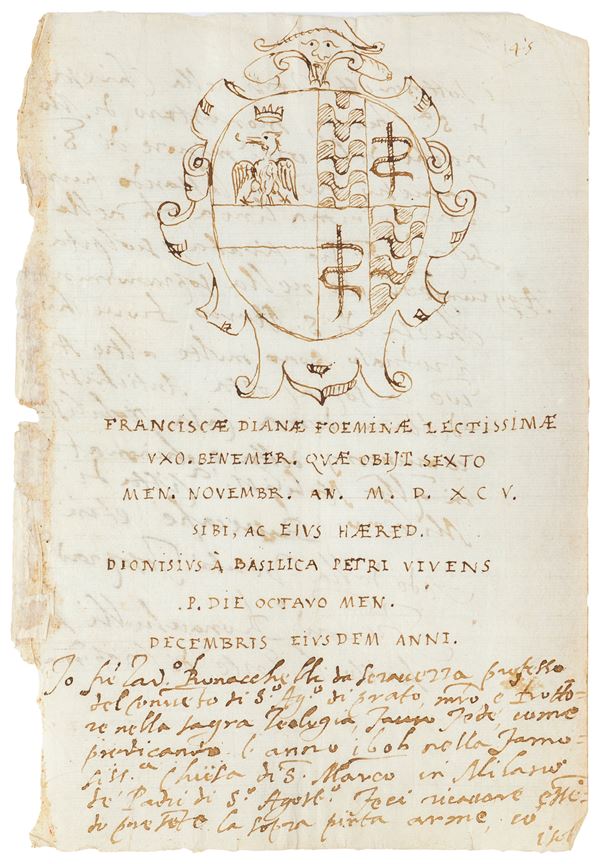 145
FRANCISCÆ DIANÆ FOEMINÆ LECTISSIMÆ
VXO. BENEMER. QVÆ OBIJT SEXTO
MEN. NOVEMBR. AN. M. D. XCV.
SIBI, AC EIVS HÆRED.
DIONISIVS À BASILICA PETRI VIVENS
.P. DIE OCTAVO MEN.
DECEMBRIS EIVSDEM ANNI.
Io frè Tad.º Bonacchelli da Seravezza professo
del convēto di S.º Ag.º di prato, mrō e Dotto-
re nella sagra Teologia, faccio fede come
predicando l'anno 1606 nella famo-
siss.ª Chiesa di S. Marco in Milano
de Padri di S.º Agost.º feci ricavare
la sopra pinta arme, co